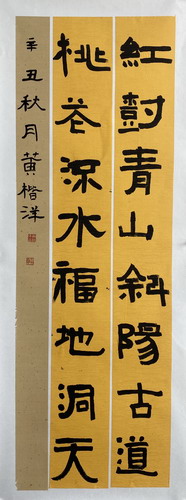 紅封青山斜陽古道
桃花深水福地洞天
辛丑秋月黄楷洋